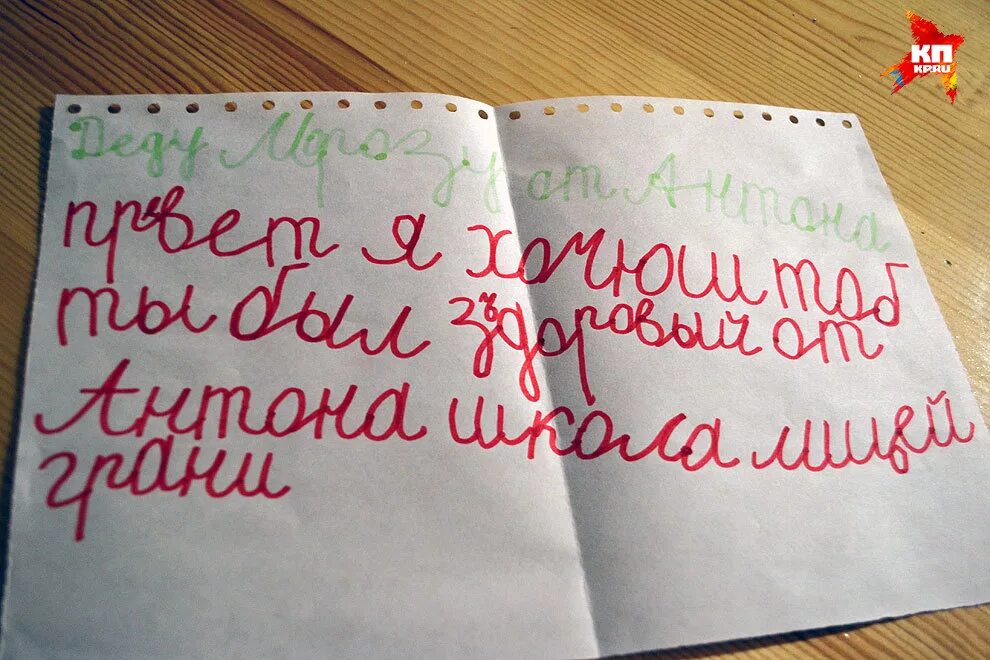 КП
KP.RU
Деду Марозу от Антона
привет я хочюш тоб
ты был здоровый от
Антона школа лицей
грани